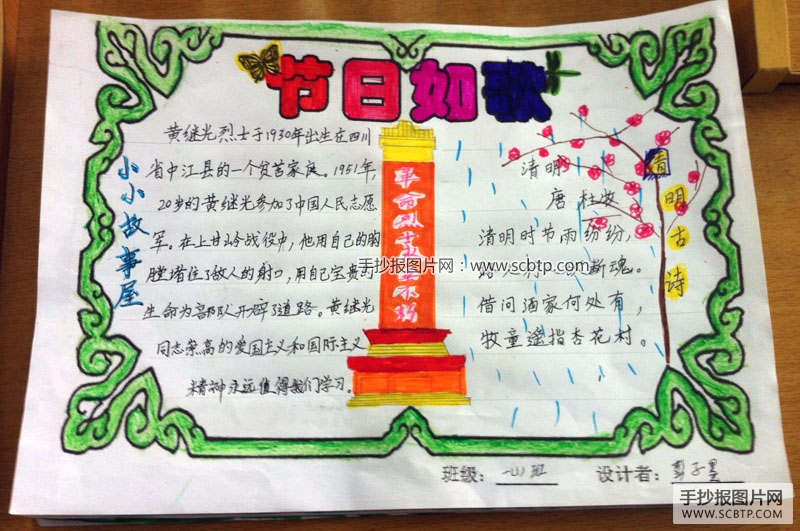 节日如歌
小小故事屋
黄继光烈士于1930年出生在四川
省中江县的一个贫苦家庭。1951年,
20岁的黄继光参加了中国人民志愿
军。在上甘岭战役中,他用自己的胸
膛堵住了敌人的射口,用自己宝贵的
生命为部队开辟了道路。黄继光
同志崇高的爱国主义和国际主义
精神永远值得我们学习。
革命烈
清明
唐 杜牧
清明时节雨纷纷,
断魂。
借问酒家何处有,
牧童遥指杏花村。
清明古诗
手抄报图片网:www.scbtp.com
班级:
设计者:
手抄报图片网
WWW.SCBTP.COM